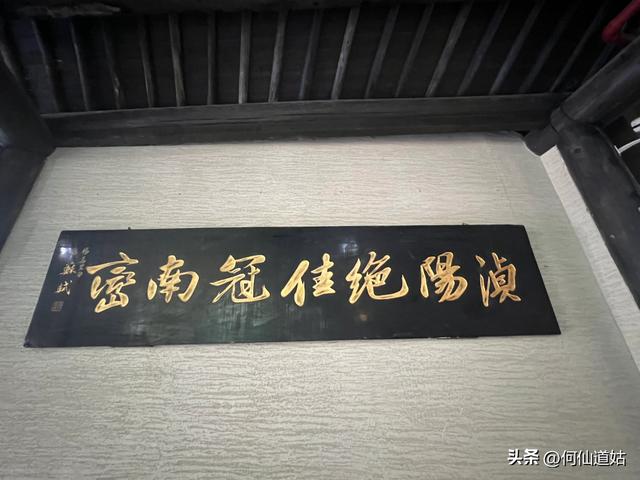 湞陽絶佳冠南巒
蘇軾
头条 @何仙道姑